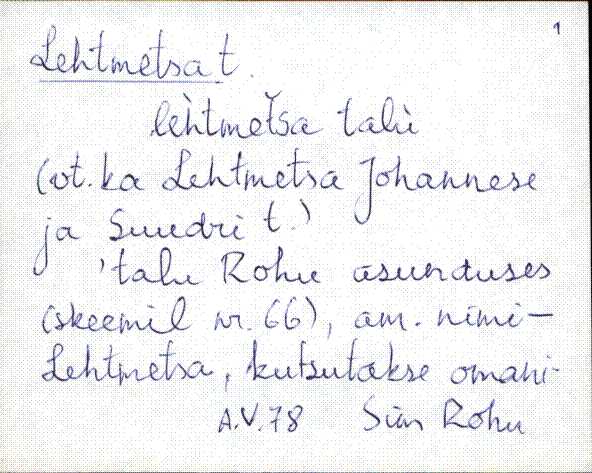 1
Lehtmetsa t.
lèhtmetša talù
(vt. ka Lehtmetsa Johannese
ja Suudri t.)
'talu Rohu asunduses
(skeemil nr. 66), am. nimi-
Lehtmetsa, kutsutakse omani-
A.V.78 Siim Rohu